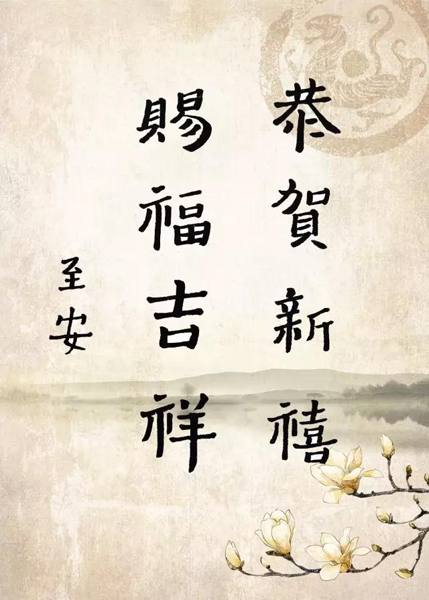 恭賀新禧
賜福吉祥
至安